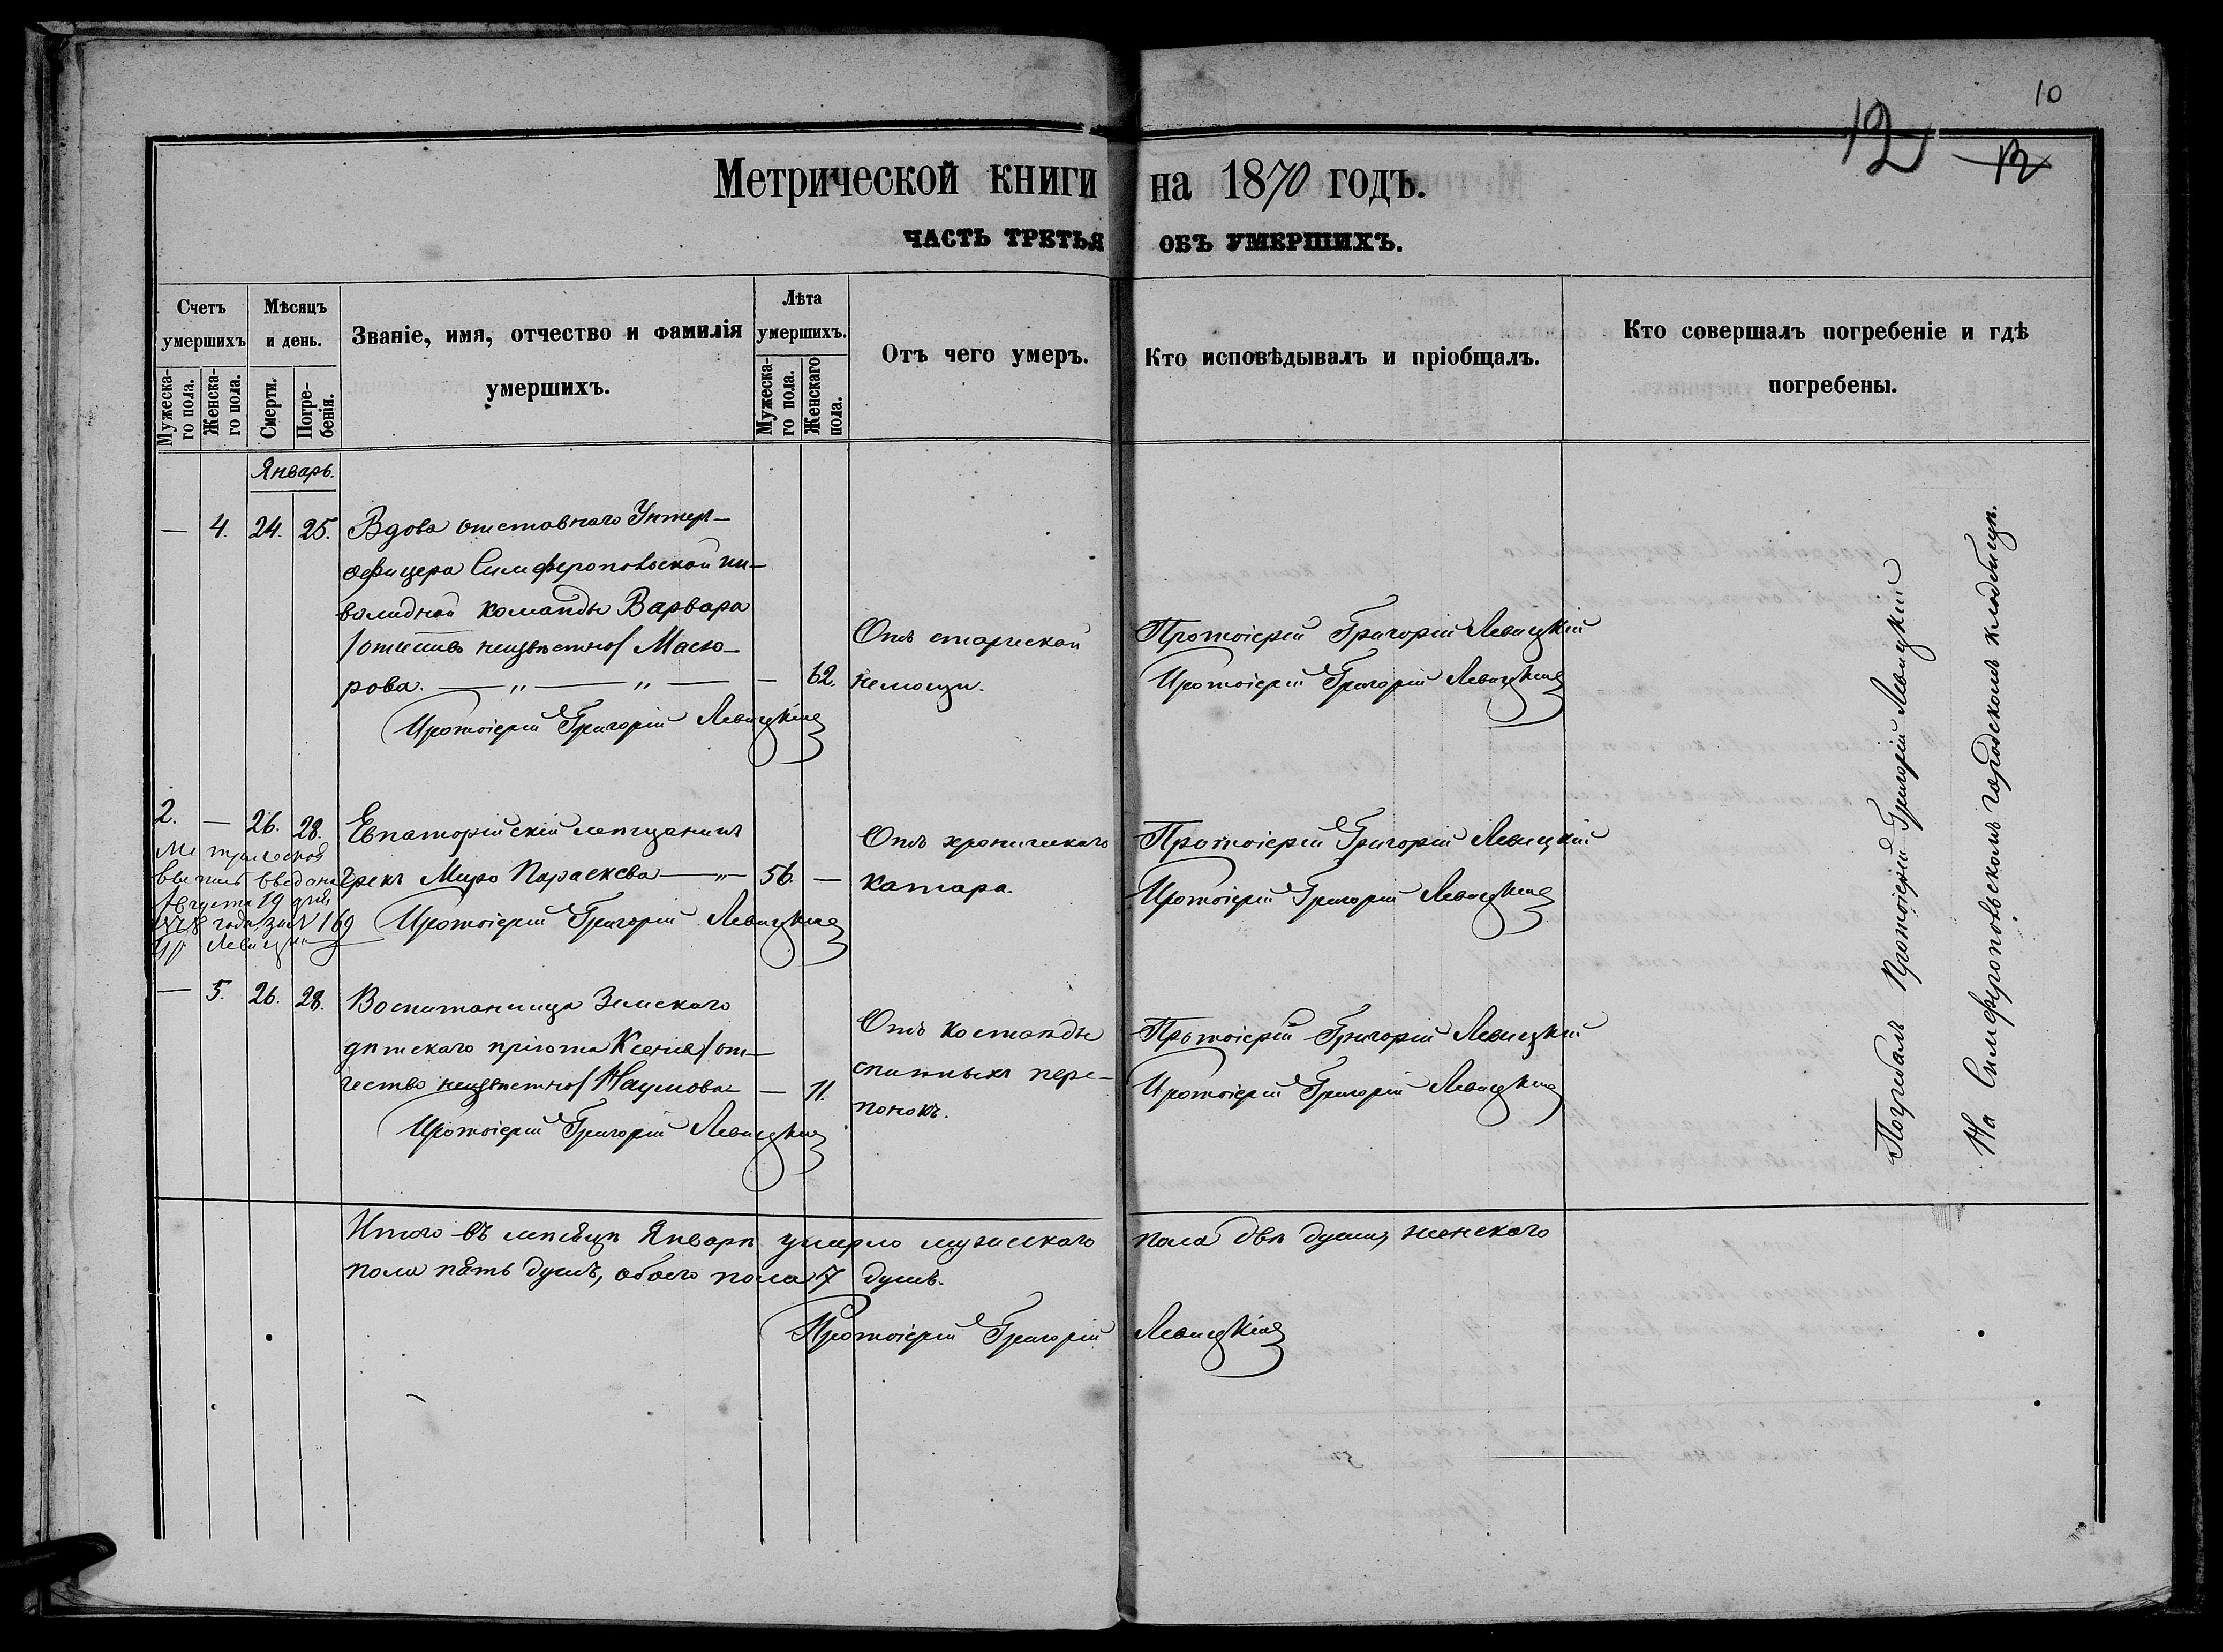 10
12
12
Метрической книги на 1870 годъ.
ЧАСТЬ ТРЕТЬЯ ОБЪ УМЕРШИХЪ.
Счетъ умершихъ
Мужеска-го пола.
Женска-го пола.
Мѣсяцъ и день.
Смерти.
Погре-бенія.
Званіе, имя, отчество и фамилія
умершихъ.
Лѣта умершихъ.
Мужеска-го пола.
Женскаго пола.
Отъ чего умеръ.
Кто исповѣдывалъ и пріобщалъ.
Кто совершалъ погребеніе и гдѣ
погребены.
Январь.
— 4. 24. 25. Вдова отставнаго Унтер-
офицера Симферопольской ин-
валидной команды Варвара
/отчество неизвѣстно/ Маею-
рова. — „ — „ — — 62.
Отъ старческой
немощи.
Протоіерей Григорій Левицкій
Протоіерей Григорій Левицкій
Протоіерей Григорій Левицкій
2. — 26. 28. Евпаторійскій мѣщанинъ
грекъ Миро Параскева — „ — 56. —
Отъ хроническаго
катара.
Протоіерей Григорій Левицкій
Протоіерей Григорій Левицкій
Протоіерей Григорій Левицкій
Метрической
выпись выдана
Августа 19 дня
года за № 169
Пр Левицкій
— 5. 26. 28. Воспитанница Земскаго
дѣтскаго пріюта Ксенія /от-
чество неизвѣстно/ Наумова — 11.
Отъ костоѣды
спинныхъ пере-
понокъ.
Протоіерей Григорій Левицкій
Протоіерей Григорій Левицкій
Протоіерей Григорій Левицкій
Погребалъ Протоіерей Григорій Левицкій
На Симферопольскомъ городскомъ кладбищѣ.
Итого въ мѣсяцѣ Январѣ умерло мужескаго пола двѣ души, женскаго
пола пять душъ, обоего пола 7 душъ.
Протоіерей Григорій Левицкій